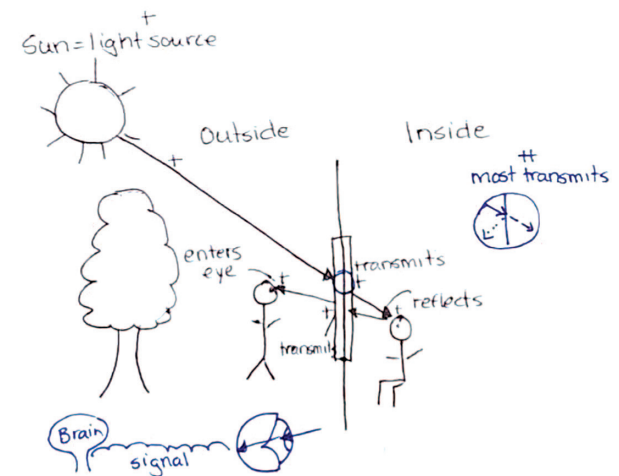 +
Sun = light source
Outside
Inside
+
++
most transmits
enters
eye
+
transmits
+
reflects
+
+
transmit
Brain
signal